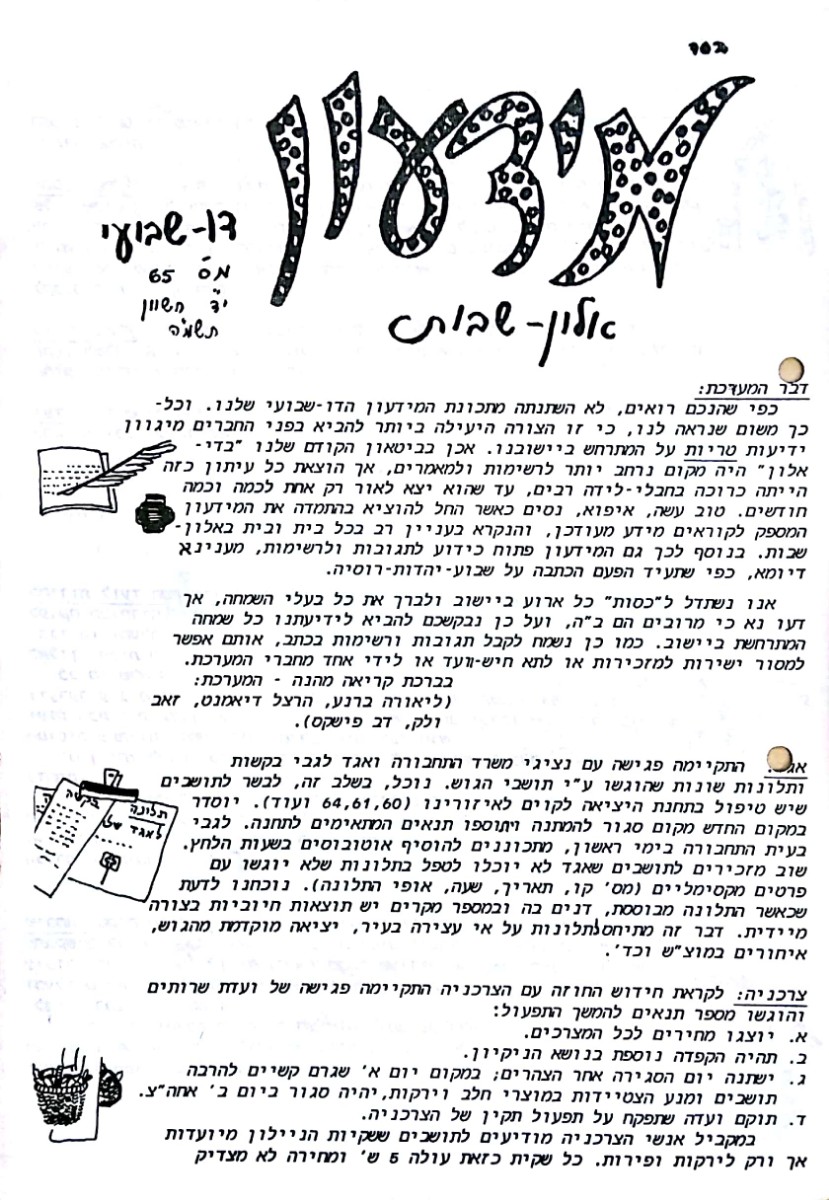 בסד
מידעון
אלון-שבות
דו-שבועי
מס' 65
י"ד חשוון
תשמ"ה
דבר המערכת:
כפי שהנכם רואים, לא השתנתה מתכונת המידעון הדו-שבועי שלנו. וכל-
כך משום שנראה לנו, כי זו הצורה היעילה ביותר להביא בפני החברים מיגוון
ידיעות טריות על המתרחש ביישובנו. אכן בביטאון הקודם שלנו "בדי-
אלון" היה מקום נרחב יותר לרשימות ולמאמרים, אך הוצאת כל עיתון כזה
הייתה כרוכה בחבלי-לידה רבים, עד שהוא יצא לאור רק אחת לכמה וכמה
חודשים. טוב עשה, איפוא, נסים כאשר החל להוציא בהתמדה את המידעון
המספק לקוראים מידע מעודכן, והנקרא בעניין רב בכל בית ובית באלון-
שבות. בנוסף לכך גם המידעון פתוח כידוע לתגובות ולרשימות, מענינא
דיומא, כפי שתעיד הפעם הכתבה על שבוע-יהדות-רוסיה.
אנו נשתדל ל"כסות" כל ארוע ביישוב ולברך את כל בעלי השמחה, אך
דעו נא כי מרובים הם ב"ה, ועל כן נבקשכם להביא לידיעתנו כל שמחה
המתרחשת ביישוב. כמו כן נשמח לקבל תגובות ורשימות בכתב, אותם אפשר
למסור ישירות למזכירות או לתא חיש-ועד או לידי אחד מחברי המערכת.
בברכת קריאה מהנה - המערכת:
(ליאורה ברנע, הרצל דיאמנט, זאב
ולק, דב פישקס).
התקיימה פגישה עם נציגי משרד התחבורה ואגד לגבי בקשות
ותלונות שונות שהוגשו ע"י תושבי הגוש. נוכל, בשלב זה, לבשר לתושבים
שיש טיפול בתחנת היציאה לקוים לאיזורינו (64,61,60 ועוד). יוסדר
במקום החדש מקום סגור להמתנה ויתוספו תנאים המתאימים לתחנה. לגבי
בעית התחבורה בימי ראשון, מתכוננים להוסיף אוטובוסים בשעות הלחץ.
שוב מזכירים לתושבים שאגד לא יוכלו לטפל בתלונות שלא יוגשו עם
פרטים מקסימליים (מס' קו, תאריך, שעה, אופי התלונה). נוכחנו לדעת
שכאשר התלונה מבוססת, דנים בה ובמספר מקרים יש תוצאות חיוביות בצורה
מיידית. דבר זה מתיחס לתלונות על אי עצירה בעיר, יציאה מוקדמת מהגוש,
איחורים במוצ"ש וכד'.
תלונה
לאגד של
צרכניה: לקראת חידוש החוזה עם הצרכניה התקיימה פגישה של ועדת שרותים
והוגשו מספר תנאים להמשך התפעול:
א. יוצגו מחירים לכל המצרכים.
ב. תהיה הקפדה נוספת בנושא הניקיון.
ג. ישתנה יום הסגירה אחר הצהרים; במקום יום א' שגרם קשיים להרבה
תושבים ומנע הצטיידות במוצרי חלב וירקות,יהיה סגור ביום ב' אחה"צ.
ד. תוקם ועדה שתפקח על תפעול תקין של הצרכניה.
במקביל אנשי הצרכניה מודיעים לתושבים ששקיות הניילון מיועדות
אך ורק לירקות ופירות. כל שקית כזאת עולה 5 ש' ומחירה לא מצדיק